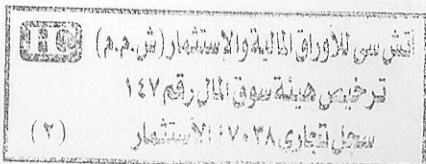 اتش سى للأوراق المالية والاستثمار (ش.م.م) HC
ترخيص هيئة سوق المال رقم ١٤٧
سجل تجارى ٠٣٨ ٧ الاستثمار (٢)